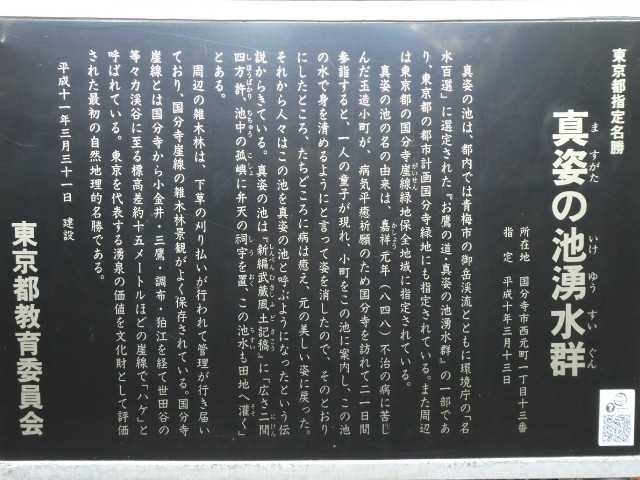 東京都指定名勝
真姿の池湧水群
ま すがた いけ ゆう すい ぐん
所在地 国分寺市西元町一丁目十三番
指定 平成十年三月十三日
真姿の池は、都内では青梅市の御岳渓流とともに環境庁の「名
水百選」に選定された『お鷹の道・真姿の池湧水群』の一部であ
り、東京都の都市計画国分寺緑地にも指定されている。また周辺
は東京都の国分寺崖線緑地保全地域に指定されている。
がいせん
真姿の池の名の由来は、嘉祥元年(八四八)不治の病に苦し
かしょう
んだ玉造小町が、病気平癒祈願のため国分寺を訪れて二一日間
参詣すると、一人の童子が現れ、小町をこの池に案内し、この池
の水で身を清めるようにと言って姿を消したので、そのとおり
にしたところ、たちどころに病は癒え、元の美しい姿に戻った。
それから人々はこの池を真姿の池と呼ぶようになったという伝
説からきている。真姿の池は『新編武蔵風土記稿』に「広さ二間
しんぺんむさしふどきこう にけん
四方許、池中の孤嶼に弁天の祠宇を置、この池水も田地へ灌ぐ」
しほうばかり ちちゅう こしょ しう おく ちすい そそ
とある。
周辺の雑木林は、下草の刈り払いが行われて管理が行き届い
ており、国分寺崖線の雑木林景観がよく保存されている。国分寺
崖線とは国分寺から小金井・三鷹・調布・狛江を経て世田谷の
等々力渓谷に至る標高差約十五メートルほどの崖線で「ハケ」と
呼ばれている。東京を代表する湧泉の価値を文化財として評価
された最初の自然地理的名勝である。
平成十一年三月三十一日 建設
東京都教育委員会